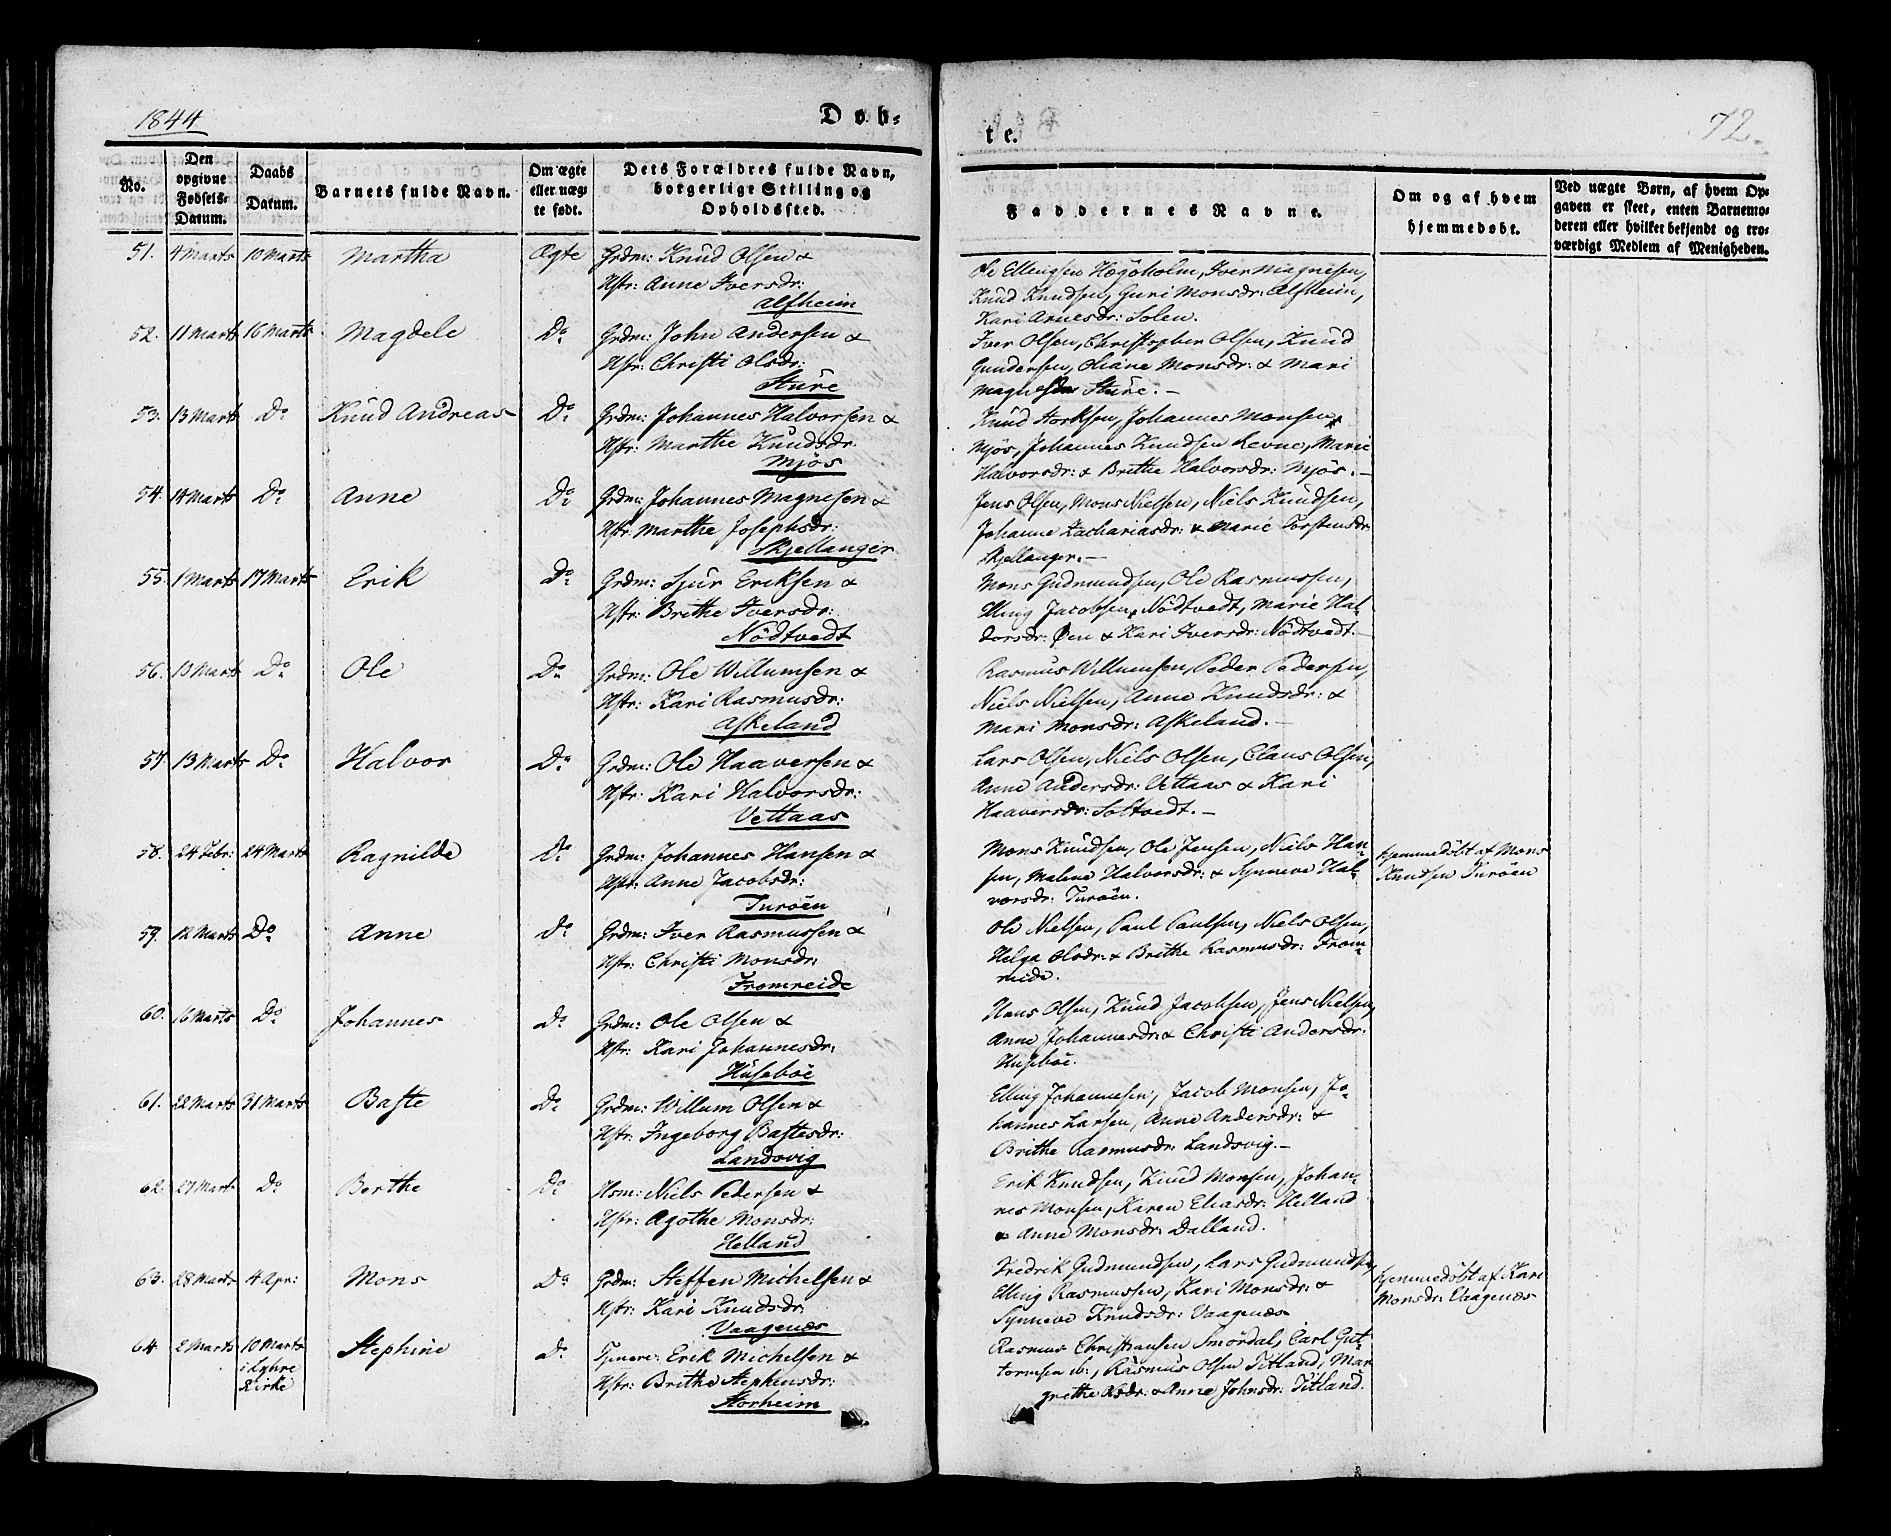 1844
Døb-
te.
72.
No.
Den opgivne Fødsels-Datum.
Daabs Datum.
Barnets fulde Navn.
Om ægte eller uægte født.
Dets Forældres fulde Navn, borgerlige Stilling og Opholdssted.
Faddernes Navne.
Om og af hvem hjemmedøbt.
Ved uægte Børn, af hvem Opgaven er skeet, enten Barnemoderen eller hvilket bekjendt og troværdigt Medlem af Menigheden.
51. 4 Marts 10 Marts Martha Ægte Grdm: Knud Olsen &
Hstr: Anne Iversdr:
Alfheim
Ole Ellingsen Hægöholm, Iver Magnesen,
Knud Knudsen, Guri Monsdr: Alfheim,
Kari Arnesdr: Solen.
52. 11 Marts 16 Marts Magdele Do Grdm: John Andersen &
Hstr: Christi Olsdr:
Sture
Iver Olsen, Christopher Olsen, Knud
Gundersen, Oliane Monsdr: & Mari
Sture. —
53. 13 Marts Do Knud Andreas Do Grdm: Johannes Halvorsen &
Hstr: Marthe Knudsdr:
Mjös
Knud Storksen, Johannes Monsen
Mjös, Johannes Knudsen Levne, Marie
Halvorsdr: & Brithe Halvorsdr: Mjös. —
54. 14 Marts Do Anne Do Grdm: Johannes Magnesen &
Hstr: Marthe Josephsdr:
Skjellanger
Jens Olsen, Mons Nielsen, Niels Knudsen,
Johanne Zachariasdr: & Marie Torstensdr:
Skjellanger. —
55. 1 Marts 17 Marts Erik Do Grdm: Sjur Eriksen &
Hstr: Brithe Iversdr:
Nödtvedt
Mons Gudmundsen, Ole Rasmussen,
Elling Jacobsen, Nödtvedt, Marie Hal-
dorsdr: Øen & Kari Iversdr: Nödtvedt. —
56. 13 Marts Do Ole Do Grdm: Ole Willumsen &
Hstr: Kari Rasmusdr:
Askeland
Rasmus Willumsen, Peder Pedersen,
Niels Nielsen, Anne Knudsdr: &
Mari Monsdr: Askeland. —
57. 13 Marts Do Halvor Do Grdm: Ole Haaversen &
Hstr: Kari Halvorsdr:
Vettaas
Lars Olsen, Niels Olsen, Claus Olsen,
Anne Andersdr: Vettaas & Kari
Haaversdr: Soltvedt. —
58. 24 Febr: 24 Marts Ragnilde Do Grdm: Johannes Hansen &
Hstr: Anne Jacobsdr:
Turöen
Mons Knudsen, Ole Jensen, Niels Han-
sen, Malene Halvorsdr: & Synneve Hal-
vorsdr: Turöen.
hjemmedöbt af Mons
Knudsen Turöen
59. 12 Marts Do Anne Do Grdm: Iver Rasmussen &
Hstr: Christi Monsdr:
Fromreide
Ole Nielsen, Paul Paulsen, Niels Olsen,
Helga Olsdr: & Brithe Rasmusdr: From-
reide.
60. 16 Marts Do Johannes Do Grdm: Ole Olsen &
Hstr: Kari Johannesdr:
Huseböe
Hans Olsen, Knud Jacobsen, Jens Nielsen,
Anne Johannesdr: & Christi Andersdr:
Huseböe.
61. 22 Marts 31 Marts Baste Do Grdm: Willum Olsen &
Hstr: Ingeborg Bastesdr:
Landsvig
Elling Johannesen, Jacob Monsen, Jo-
hannes Larsen, Anne Andersdr: &
Brithe Rasmusdr: Landsvig. —
62. 27 Marts Do Berthe Do Hsm: Niels Pedersen &
Hstr: Agothe Monsdr:
Helland
Erik Knudsen, Knud Monsen, Johan-
nes Monsen, Karen Eliasdr: Helland
& Anne Monsdr: Dalland.
63. 28 Marts 4 Apr: Mons Do Grdm: Steffen Michelsen &
Hstr: Kari Knudsdr:
Vaagenæs
Fredrik Gudmundsen, Lars Gudmundsen,
Elling Rasmussen, Kari Monsdr: &
Synneve Knudsdr: Vaagenæs
hjemmedöbt af Kari
Monsdr: Vaagenæs
64 2 Marts 10 Marts Stephine Do Tjenere: Erik Michelsen &
i Lyhre
Kirke
Hstr: Brithe Stephensdr:
Storheim
Rasmus Christiansen Smördal, Carl Gut-
tormsen ib:, Rasmus Olsen Titland, Mar-
grethe Olsdr: & Anne Johnsdr: Titland.